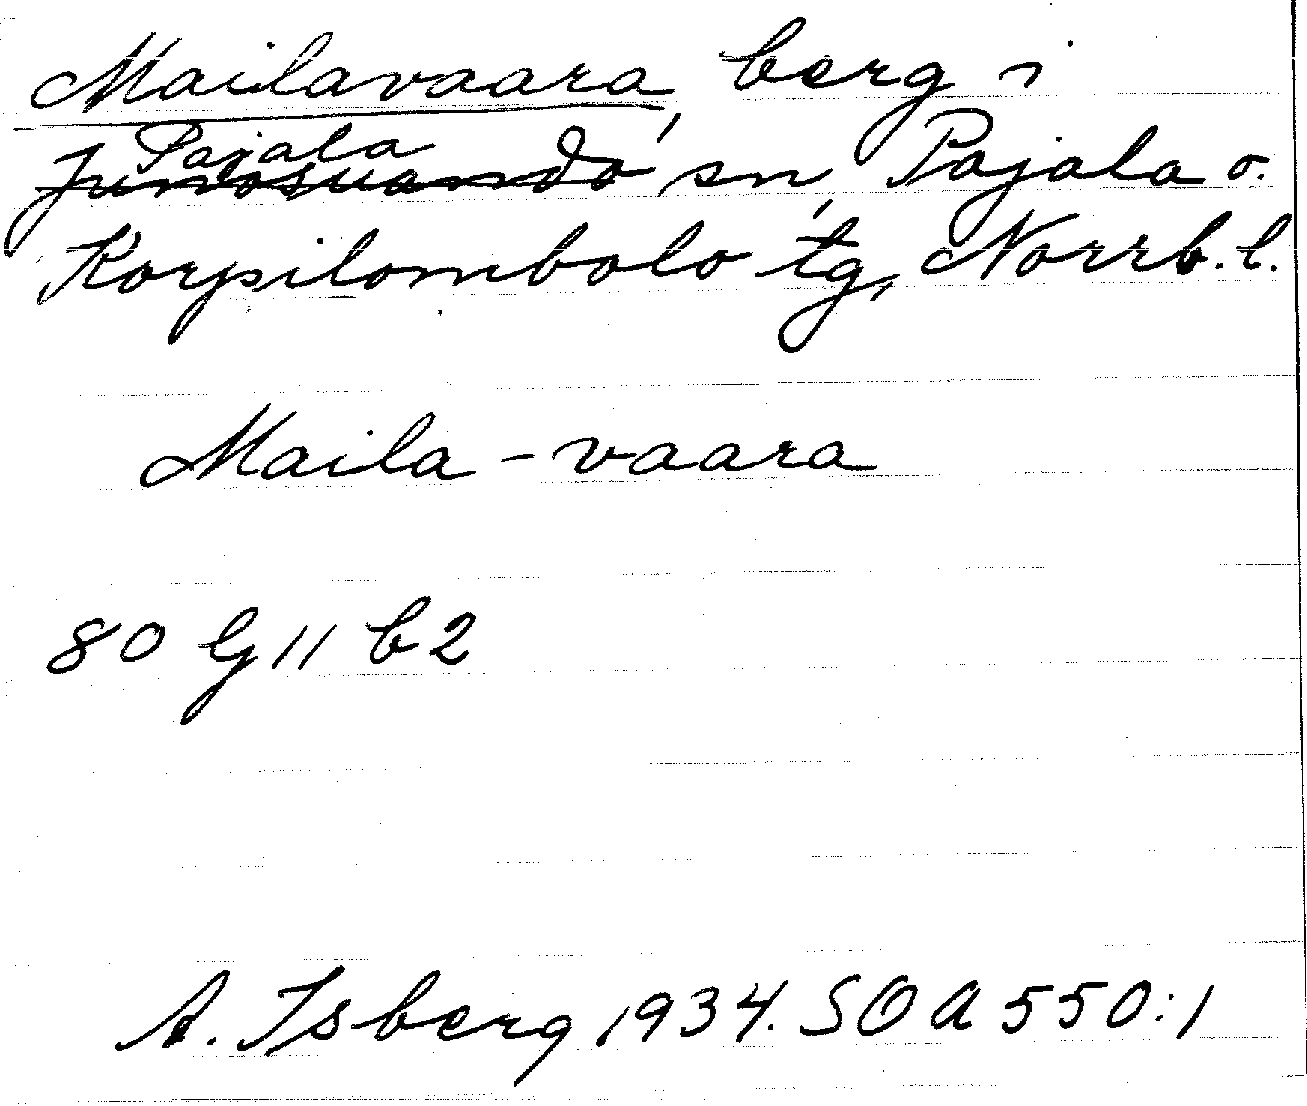 Mailavaara, berg i
Pajala
Junosuando sn, Pajala o.
Korpilombolo tg, Norrb. l.
Maila - vaara
80 G 11 b 2
A. Isberg 1934. SOA 550:1